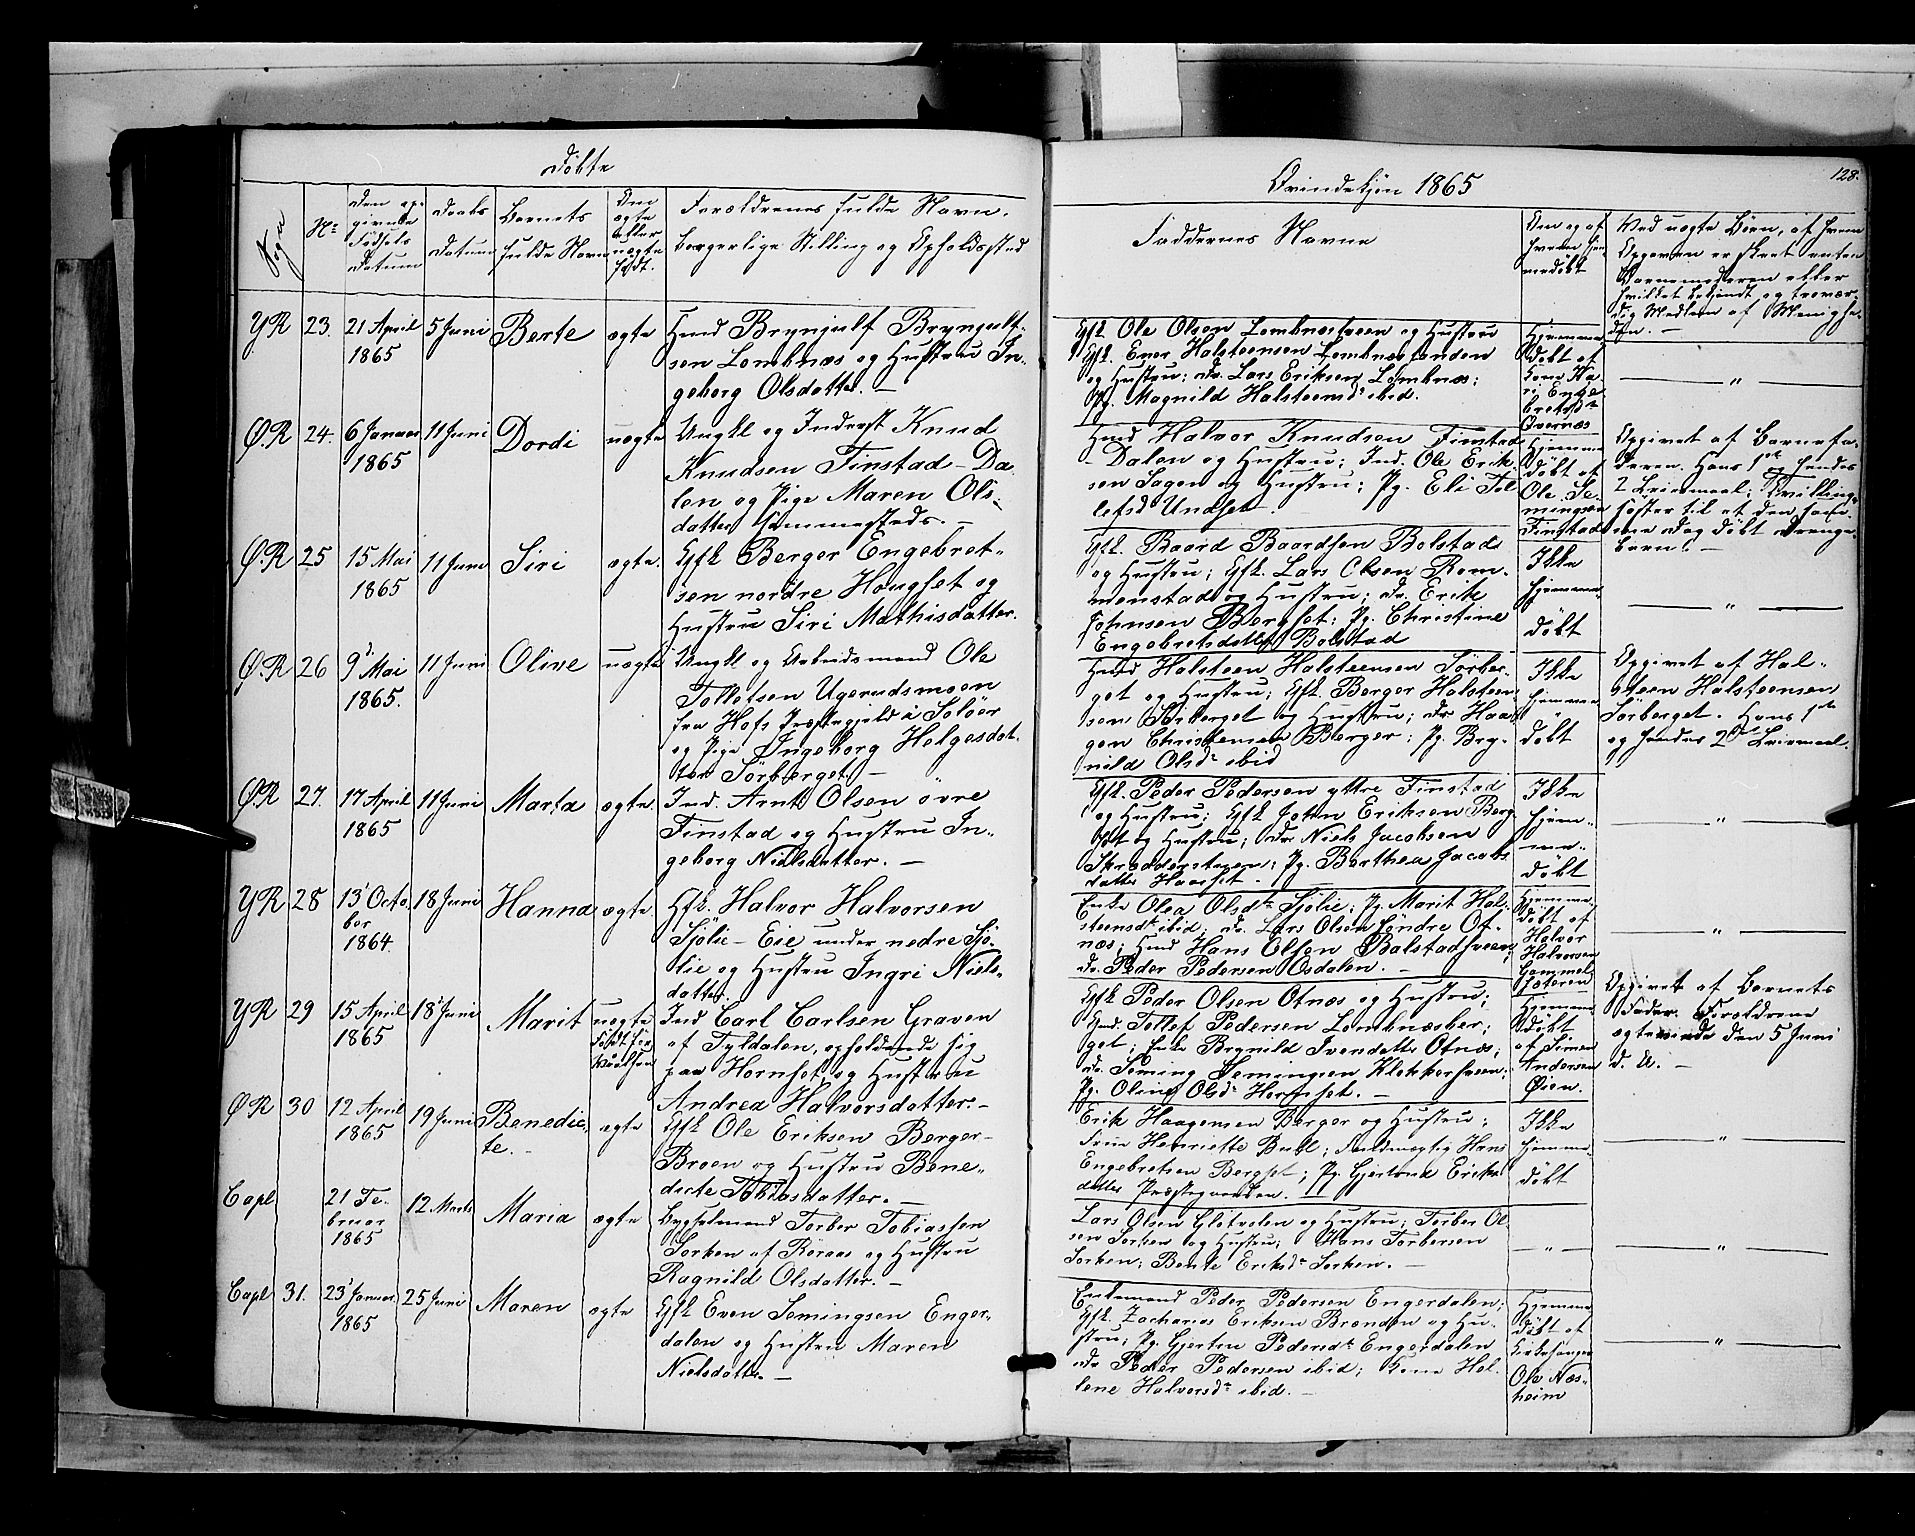 Døbte
Qvindekjøn 1865
128.
Sogn
No
Den op-
givende
Fødsels
Datum
Daabs
Datum
Barnets
fulde Navn
Om
ægte
eller
uægte
født.
Forældrenes fulde Navn,
borgerlige Stilling og Opholdssted
Faddernes Navne
Om og af
hvem hjem-
medøbt
Ved uægte Børn, af hvem
Opgaven er skeet enten
Barnemoderen eller
hvilket bekjendt og trovær-
dig Medlem af Menighe-
den. —
YR 23. 21 April
1865
5 Juni
Berte
ægte
Huusmd Bryngulf Bryngulf-
sen Lombnæs og Hustru In-
geborg Olsdatter. —
Gfk. Ole Olsen Lombnæstveen og Hustru
Gfk. Ener Halsteensen Lombnæshenden
og Hustru; Dr. Lars Eriksen Lombnæs;
Pg. Magnild Halsteensdr ibid.
Hjemme-
døbt af
Kone Ka-
ri Enge-
bretsdr
Overnæs
— " —
Ø.R 24. 6 Januar
1865
11 Juni
Dordi
uægte
Ungkl og Inderst Knud
Knudsen Finstad-Da-
len og Pige Maren Ols-
datter sammesteds. —
Huusmd Halvor Knudsen Finstad
-Dalen og Hustru; Ind. Ole Erik-
sen Sagen og Hustru; Pg. Eli Tol-
lefsd Undset. —
Hjemme-
døbt af
Ole Se-
mingsen
Finstad
Opgivet af Barnefa-
deren. Hans 1ste og hendes
2 Leiermaal; Tvillinge-
søster til et den sam-
me Dag døbt Drenge-
barn. —
Ø.R 25 15 Mai
1865
11 Juni
Siri
ægte.
Gfk Berger Engebret-
sen nordre Hougset og
Hustru Siri Mathisdatter.
Gfk. Baard Baardsen Bolstad
og Hustru; Gfk. Lars Olsen Rom-
menstad og Hustru; Dr. Erik
Johnsen Bergset; Pg. Christine
Engebretsdatter Bolstad
Ikke
hjemme-
døbt
— " —
Ø.R 26 9 Mai
1865.
11 Juni
Olive
uægte
Ungkl og Arbeidsmand Ole
Tollefsen Ugerudsmoen
fra Hofs Præstegjeld i Soløer
og Pige Ingeborg Helgesdat-
ter Sørberget. —
Huusmd Halsteen Halsteensen Sørber-
get og Hustru; Gfk. Berger Halsteen-
sen Sørberget og Hustru; Dr Haa-
gen Christensen Berger; Pg. Bry-
nild Olsdr ibid
Ikke
hjemme-
døbt
Opgivet af Hal-
steen Halsteensen
Sørberget. Hans 1ste
og hendes 2det Leiermaal.
Ø.R 27. 17 April
1865
11 Juni
Marta
ægte.
Ind. Arnt Olsen øvre
Finstad og Hustru In-
geborg Nielsdatter. —
Gfk. Peder Pedersen yttre Finstad
og Hustru; Gfk John Eriksen Berg-
set og Hustru; Dr. Niels Jacobsen
Skrædderstuen; Pg. Berthea Jacobs-
datter Haarset. —
Ikke
hjem-
me-
døbt
— " —
YR 28 13 Octo-
ber
1864.
18 Juni
Hanna
ægte.
Gfk. Halvor Halvorsen
Sjølie-Eie under nedre Sjø-
lie og Hustru Ingri Niels-
datter.
Enke Olea Olsdr Sjølie; Pg. Marit Hal-
steensdr ibid; Dr. Lars Olsen søndre Ot-
næs; Huusmd Hans Olsen Bolstadhveen;
Dr. Peder Pedersen Osdalen. —
Hjemme-
døbt af
Halvor
Halvorsen
Gammel-
sæteren
— " —
YR 29 15 April
1865
18 Juni
Marit
uægte
Født før
Vielsen
Ind Carl Carlsen Graven
af Tyldalen, opholdende sig
paa Hornset, og Hustru
Andrea Halvorsdatter. —
Gfk Peder Olsen Otnæs og Hustru;
Huusmd. Tollef Pedersen Lombnæsber-
get; Enke Brynild Ivendatter Otnæs;
Dr. Seming Semingsen Klokkerhveen;
Pg. Oline Olsdr Hornset. —
Hjemme-
døbt
af Simen
Andersen
Øien.
Opgivet af Barnets
Fader. Forældrene
ægteviede den 5 Juni
d. A. —
Ø.R 30 12 April
1865
19 Juni
Benedic-
te. —
ægte
Gfk Ole Eriksen Berger-
Broen og Hustru Bene-
dicte Tobiasdatter. —
Erik Haagensen Berger og Hustru;
Frue Henriette Buhl; Fuldmægtig Hans
Engebretsen Bergset; Pg. Gjertrud Eriks-
datter Præstegaarden. —
Ikke
hjemme-
døbt
— " —
Capl 21 Fe-
bruar
1865
12 Marts
Maria
ægte
Bygselmand Torber Tobiassen
Sorken af Røraas og Hustru
Ragnild Olsdatter. —
Lars Olsen Gløtvolen og Hustru; Torber Ol-
sen Sorken og Hustru; Hans Torbersen
Sorken; Bente Eriksdr Sorken. —
— " —
— " —
Capl 31. 23 Januar
1865
25 Juni
Maren
ægte
Gfk Even Semingsen Enger-
dalen og Hustru Maren
Nielsdatter. —
Enkemand Peder Pedersen Engerdalen;
Gfk. Zacharias Eriksen Brænden og Hu-
stru; Pg. Gjertru Pedersdr Engerdalen
Dr. Peder Pedersen ibid; Kone Hel-
lene Halvorsdr ibid. —
Hjemme-
døbt af
Kirkesanger
Ole Næs-
heim
— " —